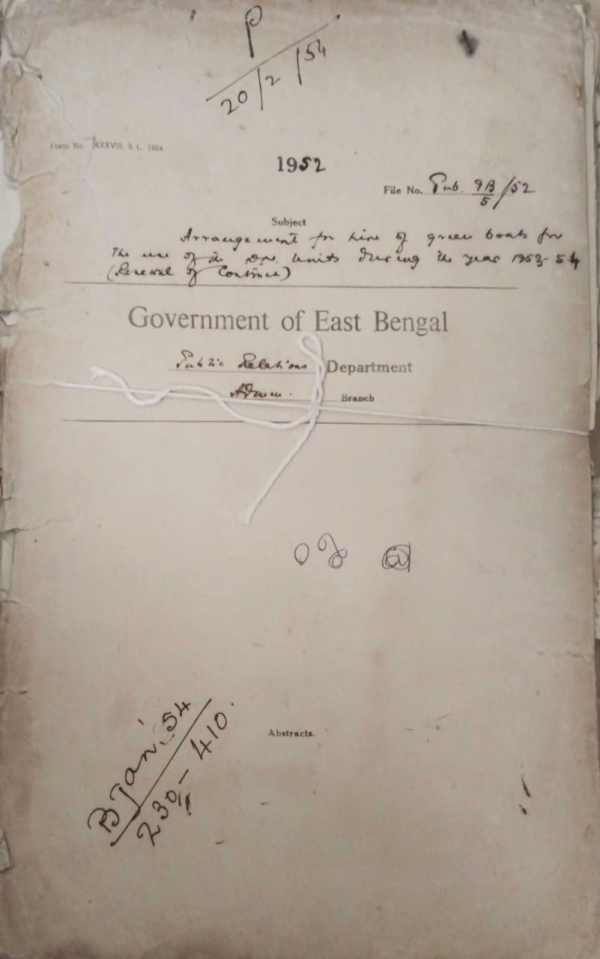 P
20/2/54
Form No. XXXVIII. S. I., 1804
1952
File No. Pub. 9B/5/52
Subject
Arrangement for hire of green boats for
the use of the Units during the year 1953-54
(Renewal of Contract)
Government of East Bengal
Public Relations Department
Admn. Branch
Abstracts.
B Jan' 54
230-410.